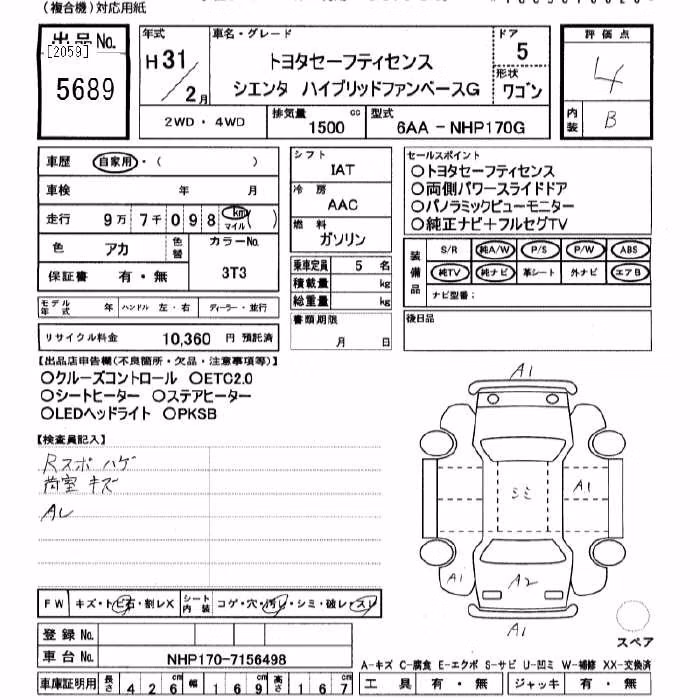 (複合機)対応用紙
出品No.
[2059]
5689
年式
H 31 / 2月
車名・グレード
トヨタセーフティセンス
シエンタ ハイブリッドファンベースG
ドア
5
形状
ワゴン
評価点
4
内装
B
2WD・4WD
排気量
1500 cc
型式
6AA - NHP170G
車歴 自家用・( )
車検 年 月
走行 9万7千098 km マイル ( )
色 アカ 色替 カラーNo. 3T3
保証書 有・無
モデル年式 年 ハンドル 左・右 ディーラー・並行
リサイクル料金 10,360 円 預託済
シフト
IAT
冷房
AAC
燃料
ガソリン
乗車定員 5 名
積載量 kg
総重量 kg
書類期限
月 日
セールスポイント
○トヨタセーフティセンス
○両側パワースライドドア
○パノラミックビューモニター
○純正ナビ+フルセグTV
装備品
S/R 純A/W P/S P/W ABS
純TV 純ナビ 革シート 外ナビ エアB
ナビ型番:
後日品
【出品店申告欄(不良箇所・欠品・注意事項等)】
○クルーズコントロール ○ETC2.0
○シートヒーター ○ステアヒーター
○LEDヘッドライト ○PKSB
【検査員記入】
Rスポ ハゲ
荷室 キズ
AL
A1
シミ
A1
A1
A2
A1
スペア
FW キズ・トビ石・割レX シート内装 コゲ・穴・汚レ・シミ・破レ・スレ
登録No.
車台No. NHP170-7156498
車庫証明用 長さ 426 cm 幅 169 cm 高さ 167 cm
A-キズ C-腐食 E-エクボ S-サビ U-凹ミ W-補修 XX-交換済
工具 有・無 ジャッキ 有・無